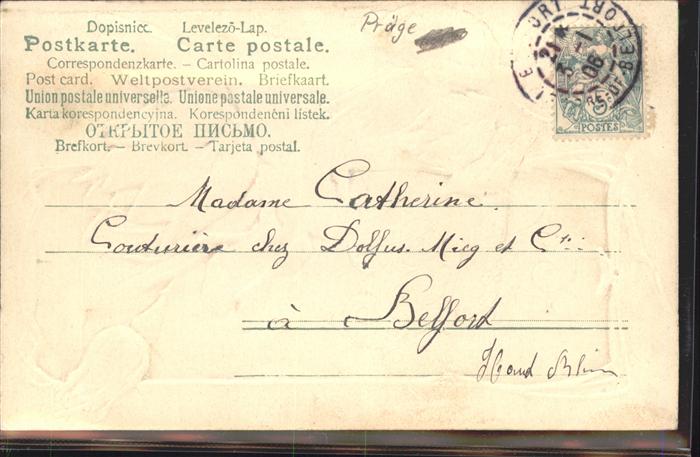 Dopisnice. Levelező-Lap.
Postkarte. Carte postale.
Correspondenzkarte. – Cartolina postale.
Post card. Weltpostverein. Briefkaart.
Union postale universelle. Unione postale universale.
Karta korespondencyjna. Korespondenční lístek.
ОТКРЫТОЕ ПИСЬМО.
Brefkort. – Brevkort. – Tarjeta postal.
Präge
BELFORT
21
06
POSTES
Madame Catherine
Couturière chez Dolfus. Mieg et Cie
à Belfort
Haut Rhin